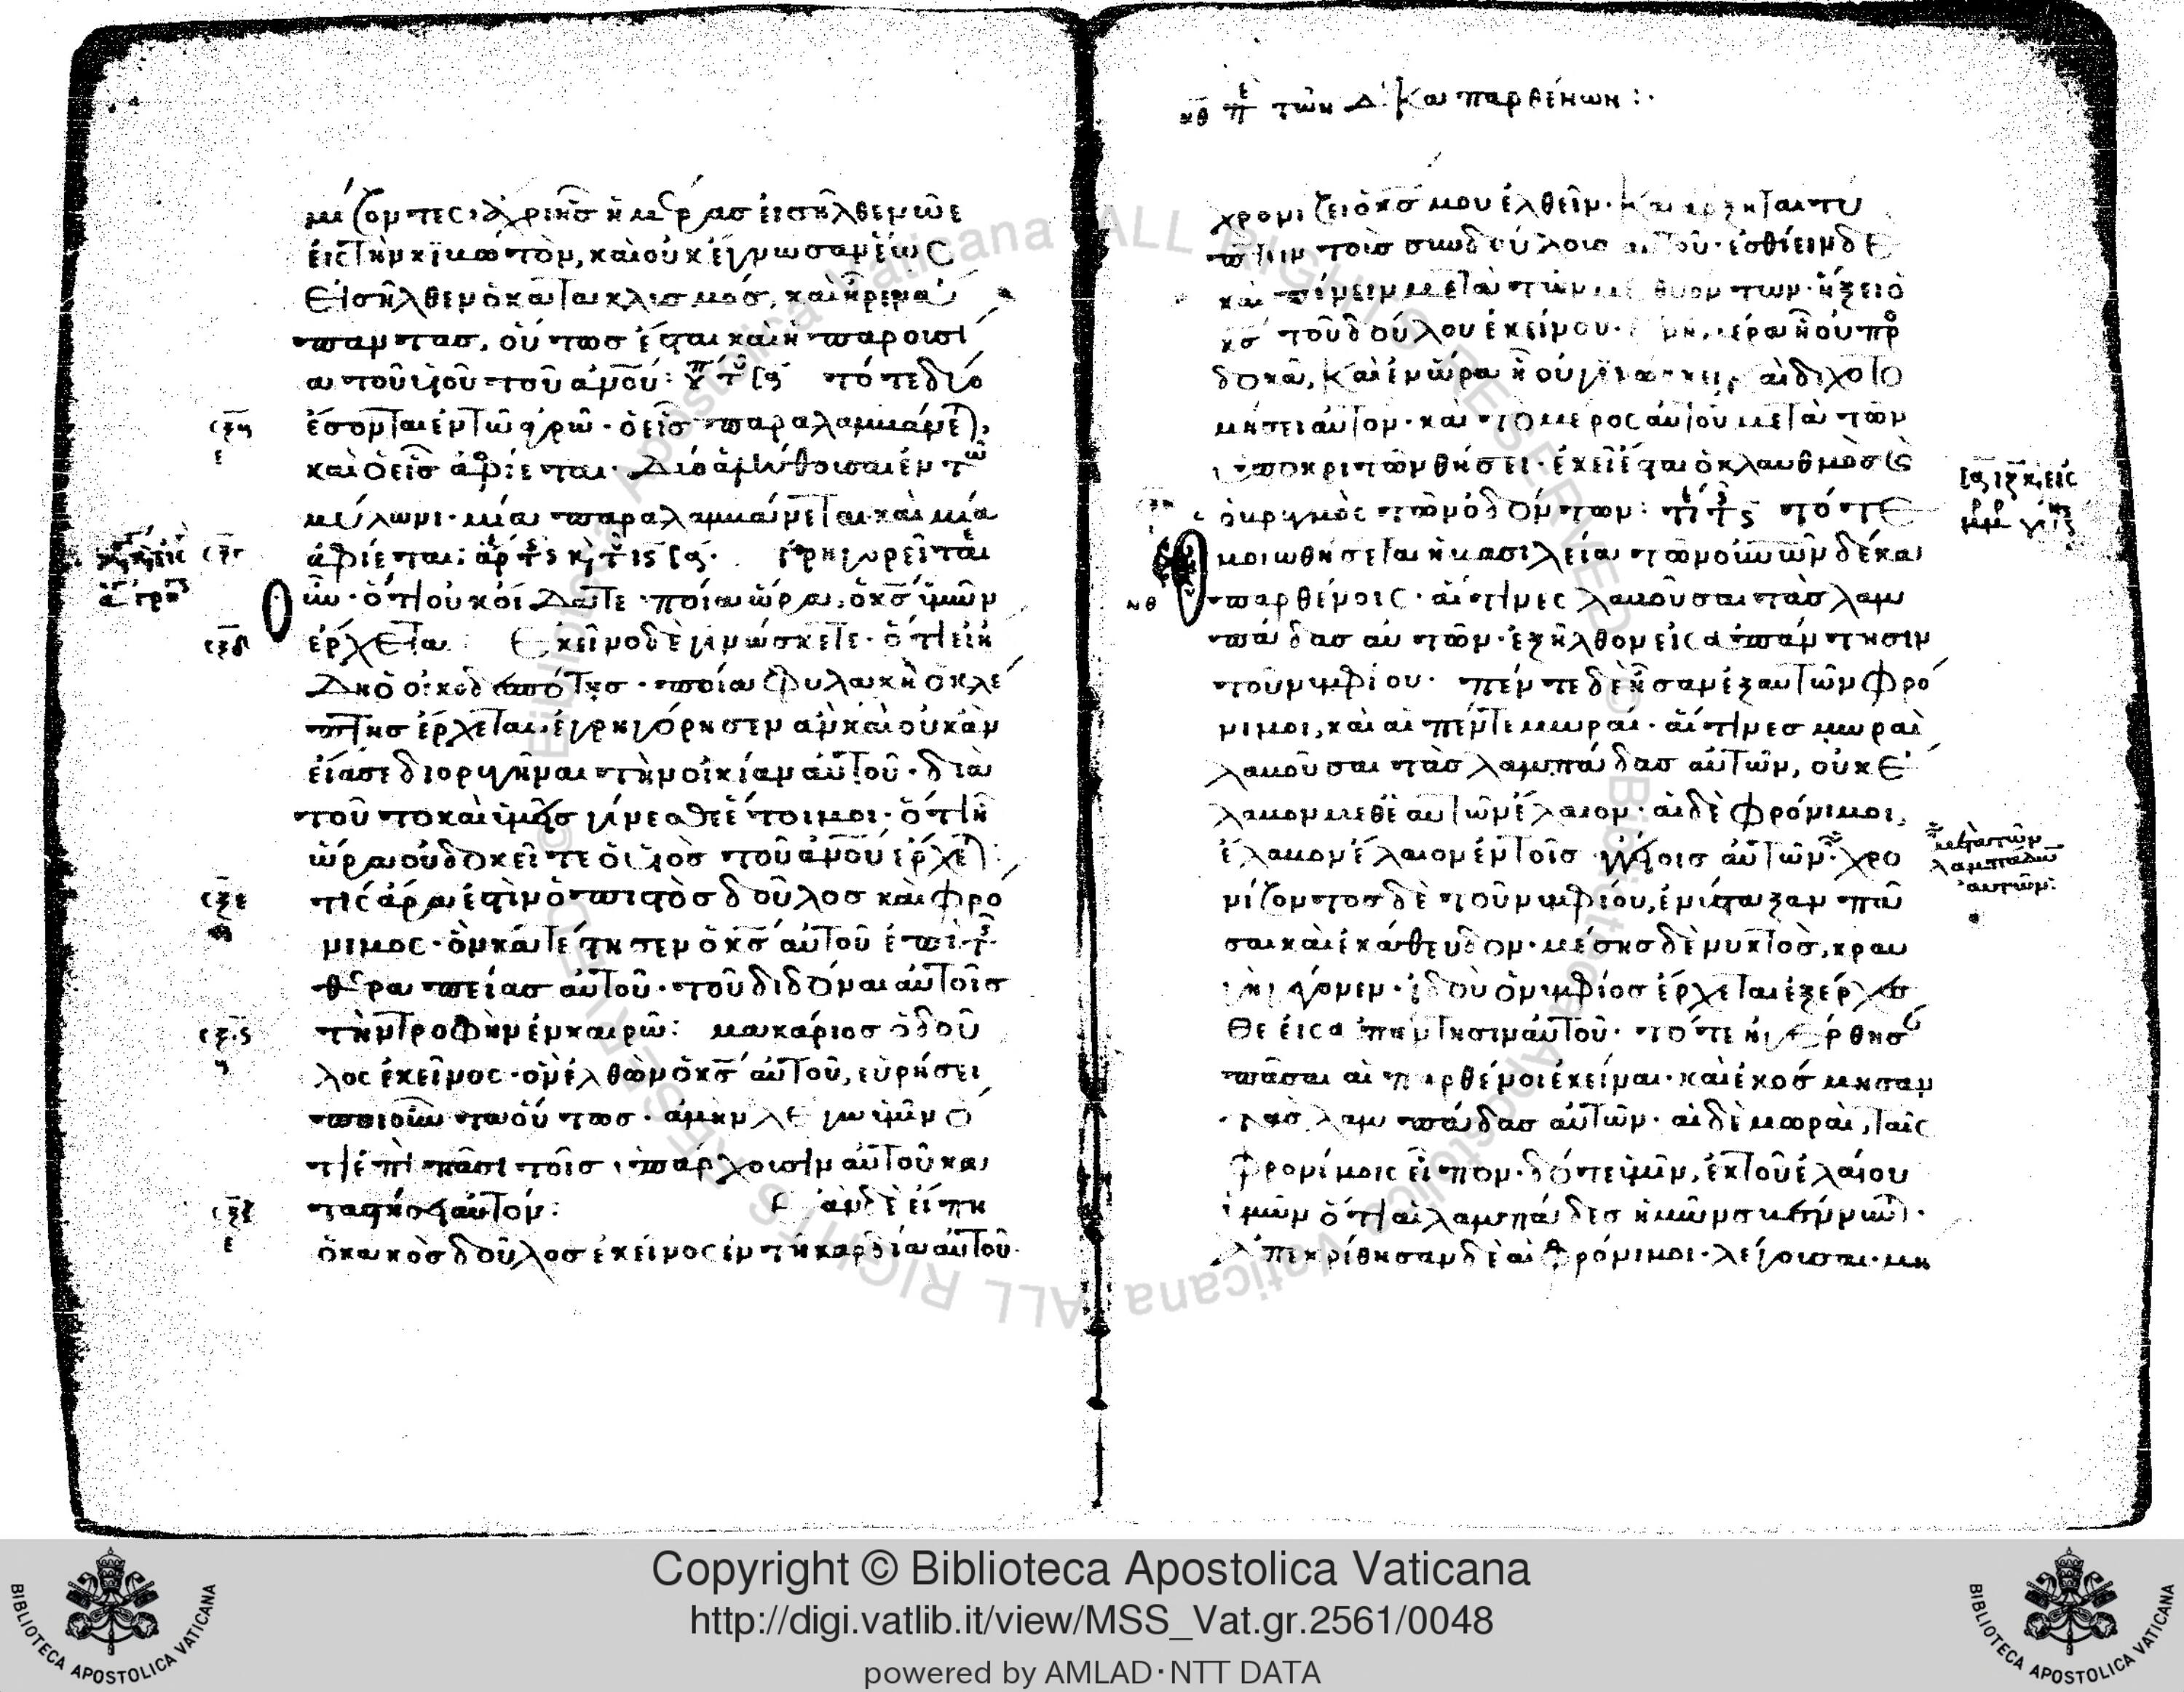 μίζοντες· ἄχρι ἧς ἡμέρας εἰσῆλθε νῶε
εἰς τὴν κιβωτόν, καὶ οὐκ ἔγνωσαν ἕως
εἰσῆλθεν ὁ κατακλισμός, καὶ ἦρεν
παντας, οὕτως ἔσται καὶ ἡ παρουσί
α τοῦ υἱοῦ τοῦ ἀνου: τότε δύο
ἔσονται ἐν τῶ ἀγρῶ· ὁ εἷς παραλαμβάνετ,
καὶ ὁ εἷς ἀφίεται· Δύο ἀλήθουσαι ἐν τῶ
μύλωνι· μία παραλαμβάνεται καὶ μία
ἀφίεται: γρηγορεῖται
οὖν· ὅτι οὐκ οἴδατε ποία ὥρα, ὁ κς ὑμῶν
ἔρχεται Ἐκεῖνο δὲ γινώσκετε· ὅτι εἰ ἤ
δη ὁ οἰκοδεσπότης· ποία φυλακῆ ὁ κλέ
πτης ἔρχεται, ἐγρηγόρησεν ἂν καὶ οὐκ ἂν
εἴασε διορυγῆναι τὴν οἰκίαν αὐτοῦ· δια
τοῦτο καὶ ὑμεῖς γίνεσθε ἕτοιμοι· ὅτι ἧ
ὥρα οὐ δοκεῖτε ὁ υἱὸς τοῦ ἀνου ἔρχετ:
τίς ἄρα ἐστὶν ὁ πιστὸς δοῦλος καὶ φρο
νιμος· ὃν κατέστησεν ὁ κς αὐτοῦ ἐπὶ τ
θεραπείας αὐτοῦ· τοῦ διδόναι αὐτοῖς
τὴν τροφὴν ἐν καιρῶ: μακάριος ὁ δοῦ
λος ἐκεῖνος· ὃν ἐλθὼν ὁ κς αὐτοῦ, εὑρήσει
ποιοῦντα οὕτως· ἀμὴν λέγω ὑμῖν ὅ
τι ἐπὶ πᾶσι τοῖς ὑπάρχουσιν αὐτοῦ κα
ταστήσει αὐτόν: Ἐὰν δὲ εἴπη
ὁ κακὸς δοῦλος ἐκεῖνος ἐν τῆ καρδία αὐτοῦ·
νθ π τῶν Δέκα παρθένων:·
χρονίζει ὁ κς μου ἐλθεῖν· Καὶ ἄρξηται τύ
πτειν τοὺς συνδούλους αὐτοῦ· ἐσθίειν δὲ
καὶ πίνειν μετὰ τῶν μεθυόντων· ἥξει ὁ
κς τοῦ δούλου ἐκείνου· ἐν ἡμέρα ἧ οὐ προ
δοκᾶ, Καὶ ἐν ὥρα ἧ οὐ γινώσκει, καὶ διχοτο
μήσει αὐτον· καὶ το μερος αὐτοῦ μετὰ τῶν
ὑποκριτῶν θήσει· ἐκεῖ ἔσται ὁ κλαυθμὸς καὶ
ὁ βρυγμὸς τῶν ὀδόντων: τότε ὁ
μοιωθήσεται ἡ βασιλεία τῶν οὐνῶν δέκα
παρθένοις· αἵτινες λαβοῦσαι τὰς λαμ
πάδας αὐτῶν· ἐξῆλθον εἰς ἀπάντησιν
τοῦ νυμφίου· πέντε δὲ ἦσαν ἐξ αὐτῶν φρό
νιμοι, καὶ αἱ πέντε μωραί· αἵτινες μωραὶ
λαβοῦσαι τὰς λαμπάδας αὐτῶν, οὐκ ἔ
λαβον μεθ' ἑαυτῶν ἔλαιον· αἱ δὲ φρόνιμοι,
ἔλαβον ἔλαιον ἐν τοῖς αὐτῶν· χρο
μετὰ τῶν
λαμπάδων
αὐτῶν:
νίζοντος δὲ τοῦ νυμφίου, ἐνύσταξαν πᾶ
σαι καὶ ἐκάθευδον· μέσης δὲ νυκτὸς, κραυ
γὴ γέγονεν· ἰδοὺ ὁ νυμφίος ἔρχεται ἐξέρχεσ
θε εἰς ἀπάντησιν αὐτοῦ· τότε ἠγέρθησ
πᾶσαι αἱ παρθένοι ἐκεῖναι· καὶ ἐκόσμησαν
τὰς λαμπάδας αὐτῶν· αἱ δὲ μωραὶ, ταῖς
φρονίμοις εἶπον· δότε ἡμῖν, ἐκ τοῦ ἐλαίου
ὑμῶν ὅτι αἱ λαμπάδες ἡμῶν σβέννυντ·
Ἀπεκρίθησαν δὲ αἱ φρόνιμοι· λέγουσαι· μη
Copyright © Biblioteca Apostolica Vaticana
http://digi.vatlib.it/view/MSS_Vat.gr.2561/0048
powered by AMLAD·NTT DATA
BIBLIOTECA APOSTOLICA VATICANA
BIBLIOTECA APOSTOLICA VATICANA